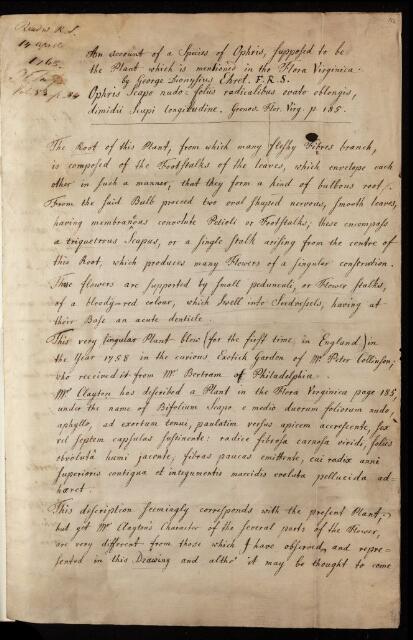 Read at R.S.
14 April
1763.
Vol. 53 p. 81
An account of a Species of Ophris, supposed to be
the Plant which is mentioned in the Flora Virginica.
by George Dionysius Ehret. F.R.S.
Ophris Scapo nudo: foliis radicalibus ovato oblongis,
dimidii Scapi longitudine. Gronov. Flor. Virg. p. 185.
The Root of this Plant, from which many fleshy Fibres branch,
is composed of the Footstalks of the leaves, which envelope each
other in such a manner, that they form a kind of bulbous root.
From the said Bulb proceed two oval shaped nervous, smooth leaves,
having membranous convolute Petioli or Footstalks; these encompass
a triquetrous Scapus, or a single stalk arising from the centre of
this Root, which produces many Flowers of a singular construction.
These flowers are supported by small pedunculi, or Flower stalks,
of a bloody-red colour, which swell into Seedvessels, having at
their Base an acute denticle.
This very singular Plant blew (for the first time, in England) in
the Year 1758 in the curious Exotick Garden of Mr Peter Collinson;
who received it from Mr Bertram of Philadelphia.
Mr Clayton has discribed a Plant in the Flora Virginica page 185,
under the name of Bifolium Scapo e medio duorum foliorum nudo,
aphyllo, ad exortum tenui, paulatim versus apicem accrescente, sex
vel septem capsulas sustinente: radice fibrosa carnosa viridi, foliis
obvoluta humi jacente, fibras paucas emittente, cui radix anni
superioris contigua et integumentis marcidis evoluta pellucida ad-
hæret.
This discription seemingly corresponds with the present Plant,
but yet Mr Clayton's Character of the several parts of the Flower,
are very different from those which I have observed, and repre-
sented in this Drawing and altho' it may be thought to come